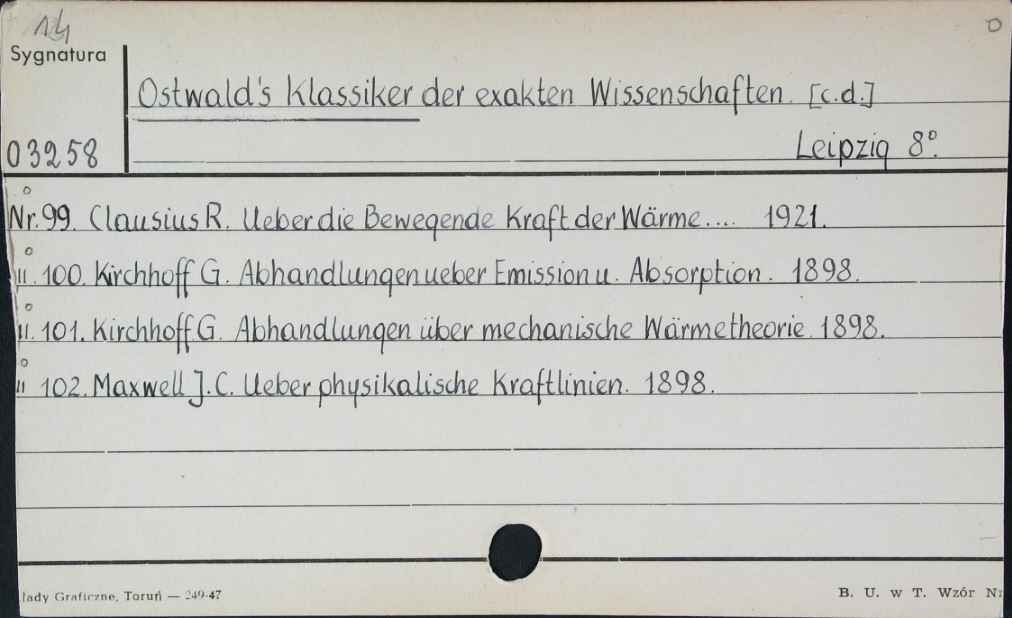 14
Sygnatura
Ostwald's Klassiker der exakten Wissenschaften. [c.d.]
03258
Leipzig 8°.
Nr. 99. Clausius R. Ueber die Bewegende Kraft der Wärme.... 1921.
" 100. Kirchhoff G. Abhandlungen ueber Emission u. Absorption. 1898.
" 101. Kirchhoff G. Abhandlungen über mechanische Wärmetheorie. 1898.
" 102. Maxwell J.C. Ueber physikalische Kraftlinien. 1898.
łady Graficzne, Toruń — 249-47
B. U. w T. Wzór Nr